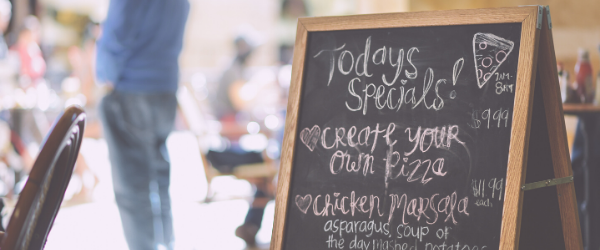 Todays
Specials!
7AM-
8PM
♡ Create your $9.99
own pizza
♡ Chicken Marsala $11.99
asparagus, soup of
the day, mashed potatoes